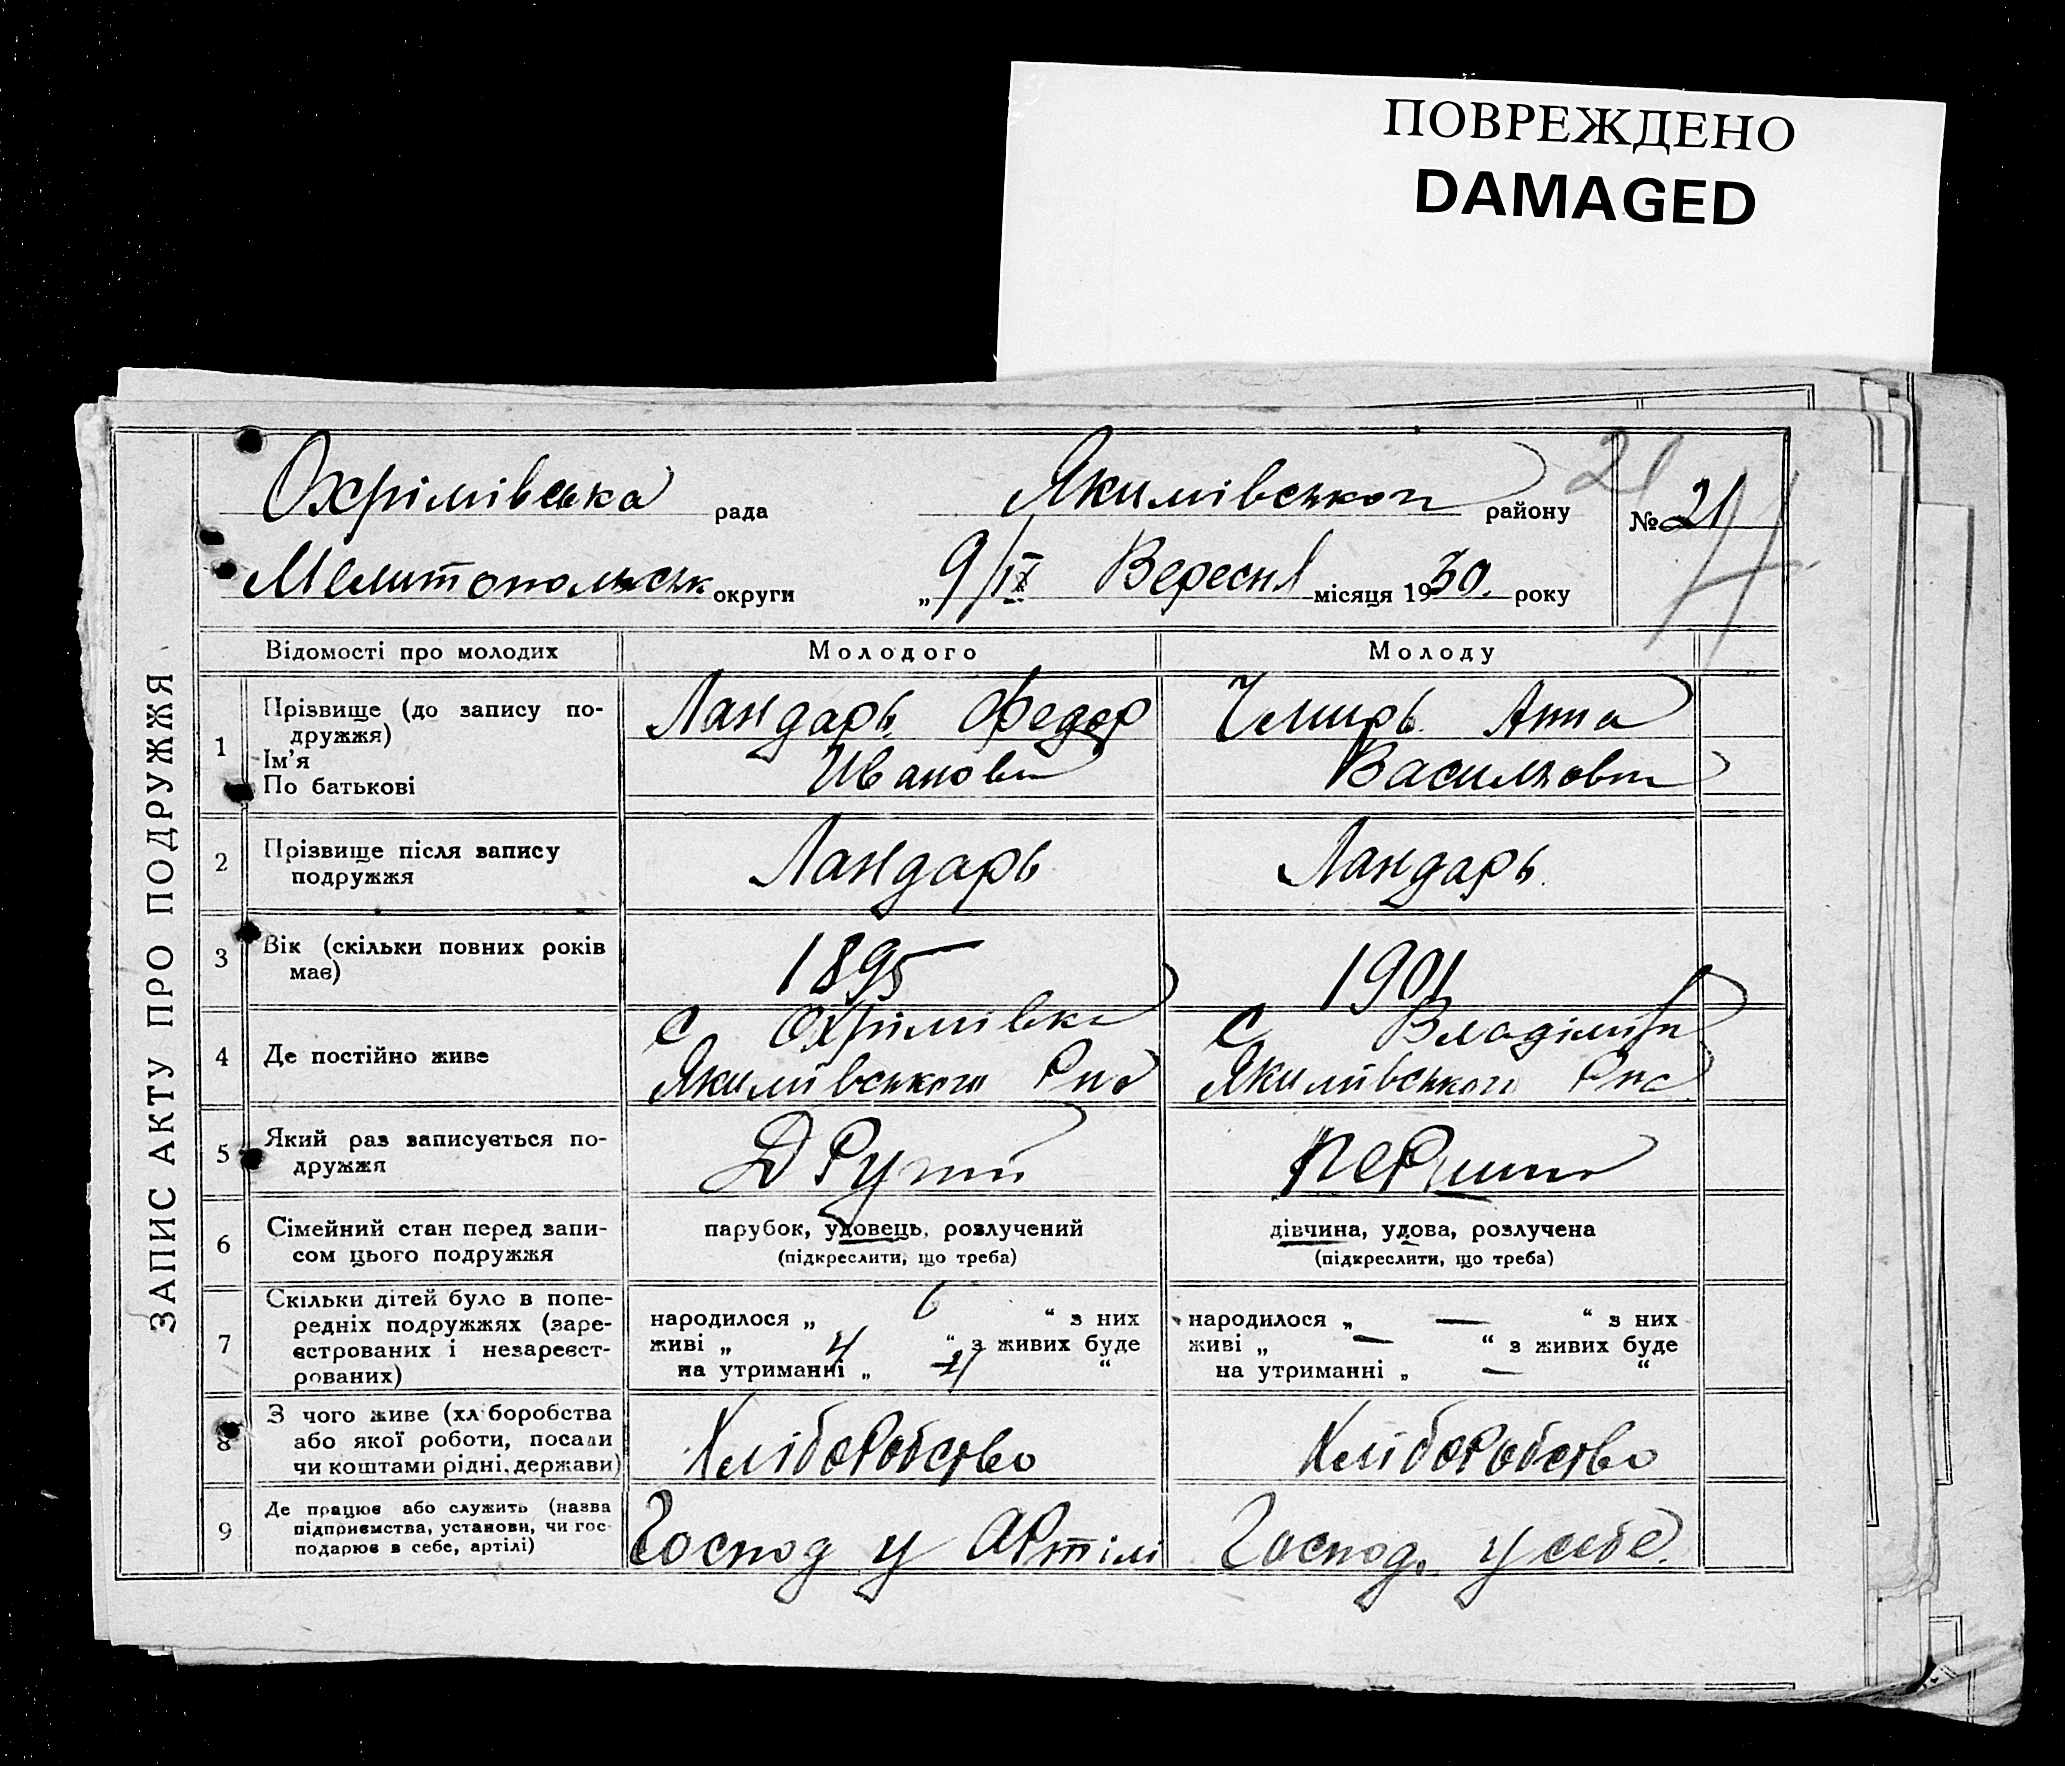 ПОВРЕЖДЕНО
DAMAGED
21
Охрімівська рада Якимівського району № 21
Мелитопольськ округи „ 9/IX Вересня місяця 1930. року
ЗАПИС АКТУ ПРО ПОДРУЖЖЯ
Відомості про молодих Молодого Молоду
1 Прізвище (до запису по-
дружжя)
Ім'я
По батькові
Ландарь Федор
Иванович
Чемирь Анна
Васильовна
2 Прізвище після запису
подружжя
Ландарь Ландарь.
3 Вік (скільки повних років
має)
1895 1901
4 Де постійно живе
с Охрімівка
Якимівського
с
Якимівського
5 Який раз записується по-
дружжя
Другий Перший
6 Сімейний стан перед запи-
сом цього подружжя
парубок, удовець, розлучений
(підкреслити, що треба)
дівчина, удова, розлучена
(підкреслити, що треба)
7 Скільки дітей було в попе-
редніх подружжях (заре-
єстрованих і незареєст-
рованих)
народилося „ 6 “ з них
живі „ 4 “ з живих буде
на утриманні „ 4 “
народилося „ — “ з них
живі „ — “ з живих буде
на утриманні „ — “
8 З чого живе (хліборобства
або якої роботи, посади
чи коштами рідні, держави)
Хліборобство Хліборобство
9 Де працює або служить (назва
підприємства, установи, чи гос-
подарює в себе, артілі)
Господ у Артілі Господ. у себе.